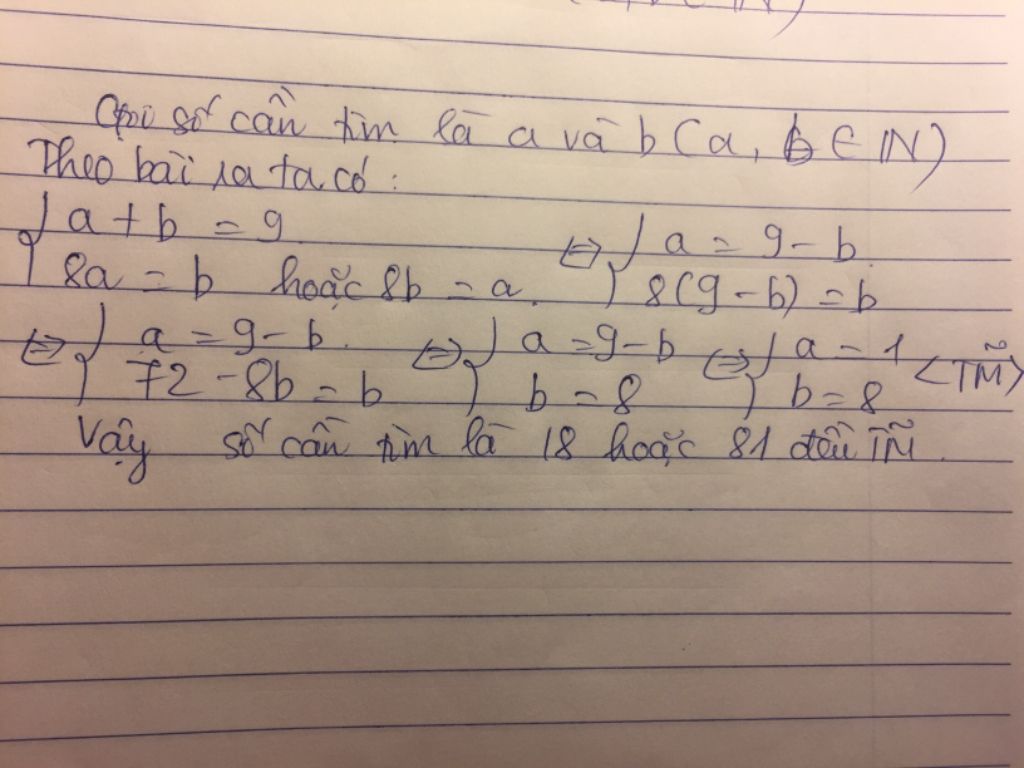 Gọi số cần tìm là a và b (a, b ∈ ℕ)
Theo bài ra ta có :
{ a + b = 9 ⇔ { a = 9 - b
8a = b hoặc 8b = a. 8(9 - b) = b
⇔ { a = 9 - b. ⇔ { a = 9 - b ⇔ { a = 1 <TM̃>
72 - 8b = b b = 8 b = 8
Vậy số cần tìm là 18 hoặc 81 đều TM̃.